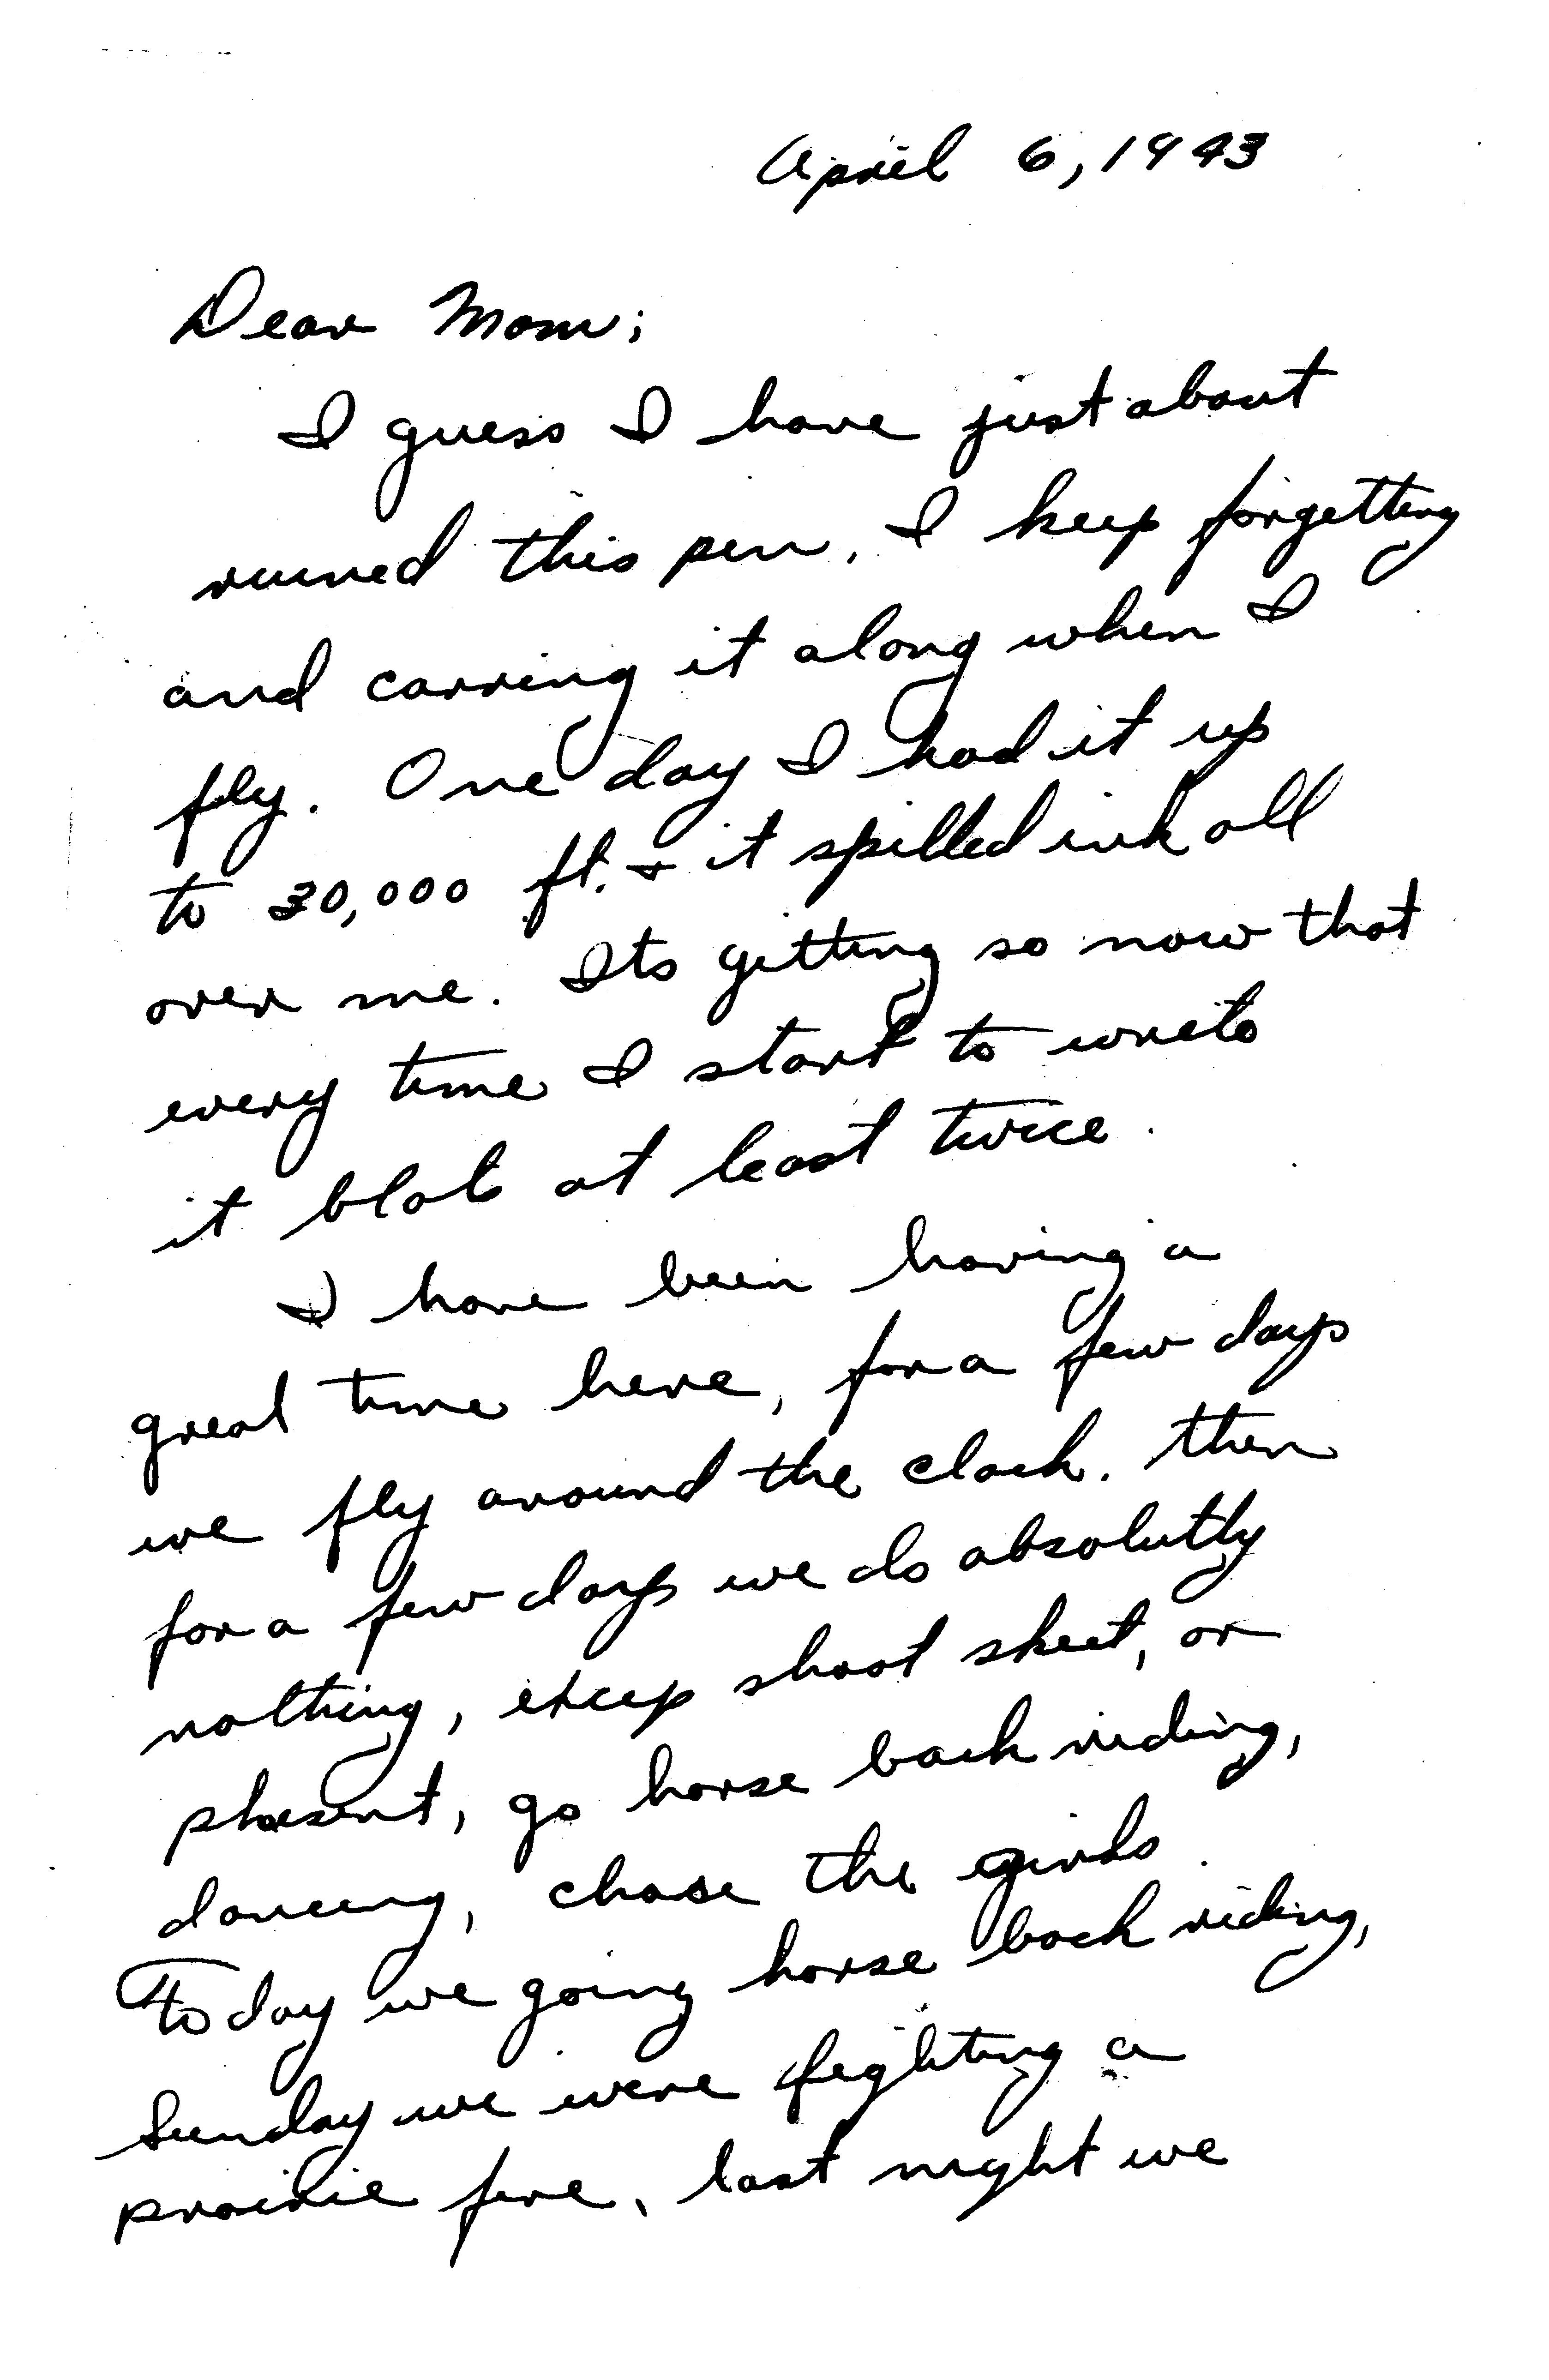 April 6, 1943
Dear Mom;
I guess I have just about
ruined this pen, I keep forgetting
and carring it along when I
fly. One day I had it up
to 30,000 ft. & it spilled ink all
over me. Its getting so now that
every time I start to write
it blob at least twice.
I have been having a
great time here, for a few days
we fly around the clock. then
for a few days we do absolutly
nothing, excep shoot skeet, or
phesent, go horse back riding,
dancing, chase the girls.
Today we going horse back riding,
Sunday we were fighting a
prairie fire, last night we